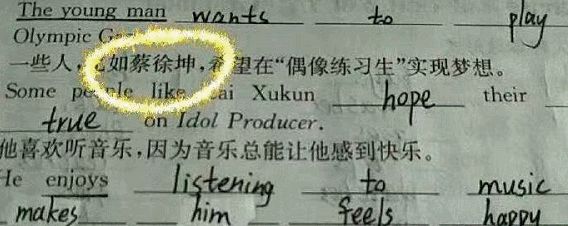 The young man wants to play
Olympic
一些人,比如蔡徐坤,希望在“偶像练习生”实现梦想。
Some people like Cai Xukun hope their
true on Idol Producer.
他喜欢听音乐,因为音乐总能让他感到快乐。
He enjoys listening to music
makes him feels happy